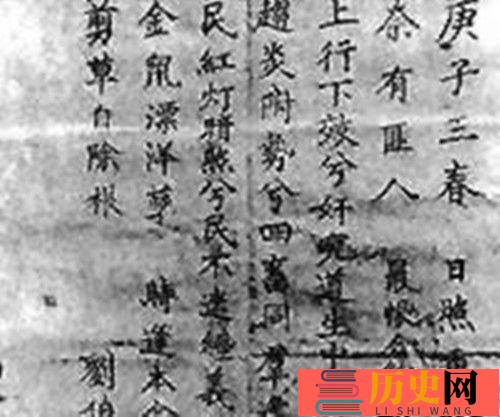 庚子三春 日照
奈有匪人 最恨
上行下效兮 奸宄道生
趨炎附勢兮 四畜同群
民 紅灯 照兮民不迷經義
金鼠漂洋孽 時逢本
剪草自除根 劉伯
历史网
LI SHI WANG